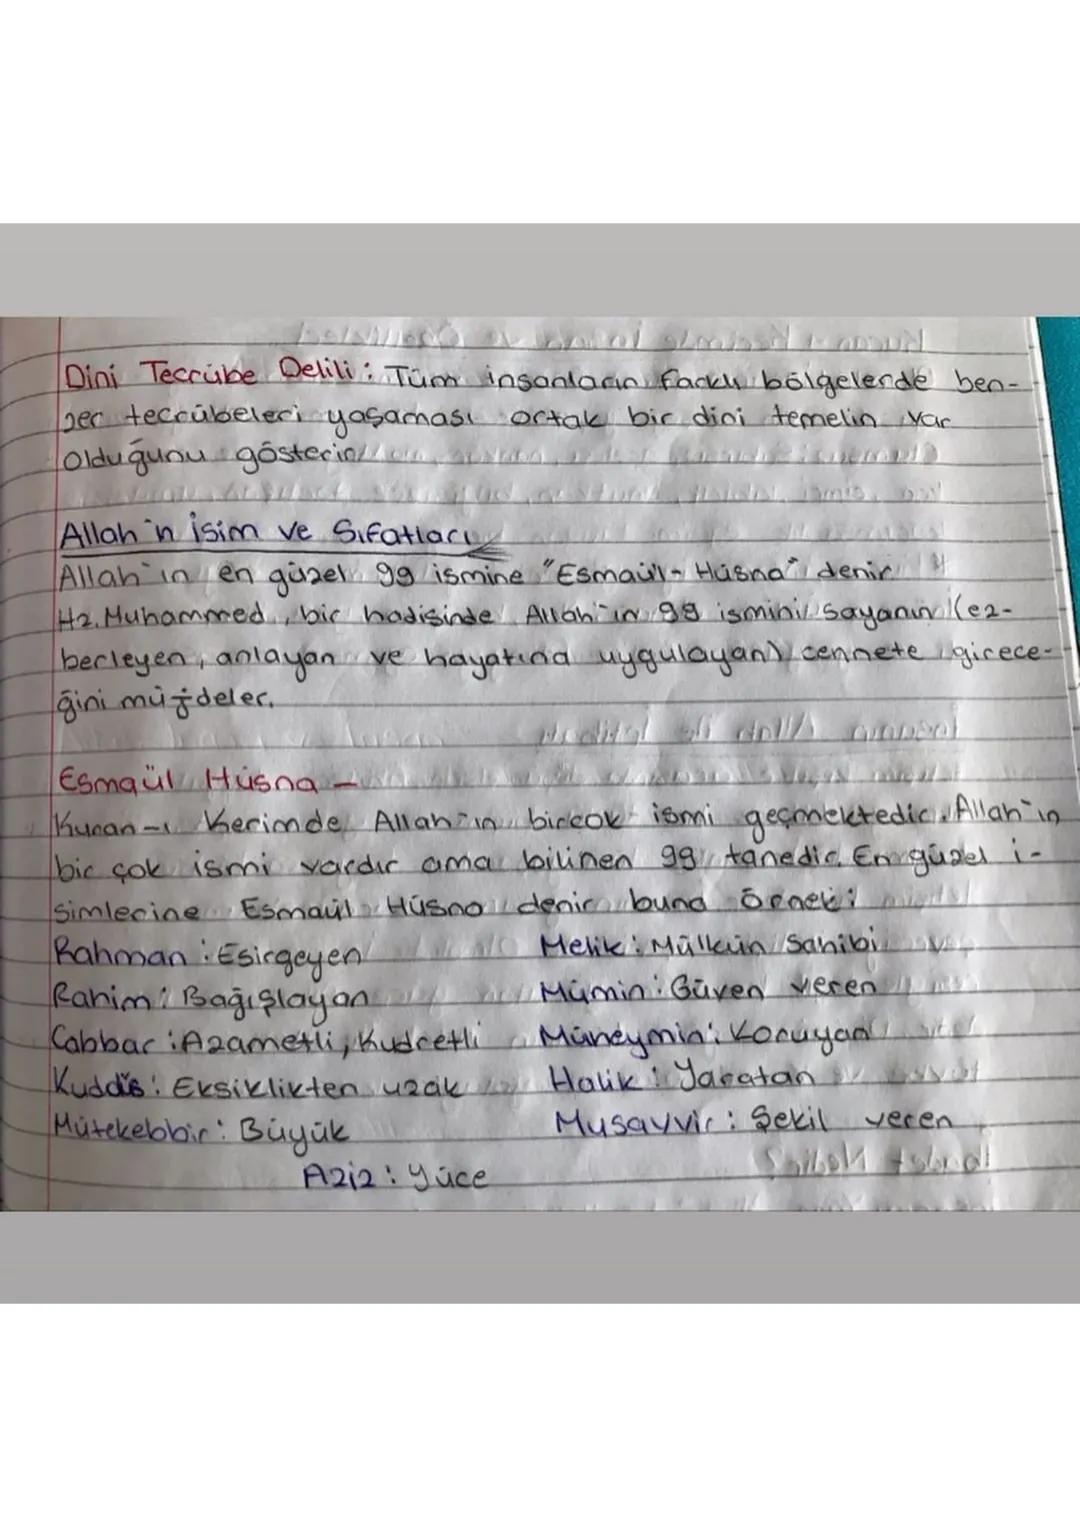 Dini Tecrübe Delili : Tüm insanların farklı bölgelerde ben-
zer tecrübeleri yaşaması ortak bir dini temelin var
olduğunu gösterir
Allah'n İsim ve Sıfatları
Allah'ın en güzel 99 ismine "Esmaül-Hüsna" denir
Hz. Muhammed, bir hadisinde Allah'ın 99 ismini sayanın (ez-
berleyen, anlayan ve hayatına uygulayan) cennete girece-
ğini müjdeler.
Esmaül Hüsna -
Kuran-ı Kerimde Allah'ın birçok ismi geçmektedir. Allah'ın
bir çok ismi vardır ama bilinen 99 tanedir. En güzel i-
simlerine Esmaül Hüsna denir buna Örnek:
Rahman : Esirgeyen Melik : Mülkün Sahibi
Rahim : Bağışlayan Mümin : Güven veren
Cabbar : Azametli, Kudretli Müheymin : Koruyan
Kuddüs : Eksiklikten uzak Halik : Yaratan
Mütekebbir : Büyük Musavvir : Şekil veren
Aziz : Yüce